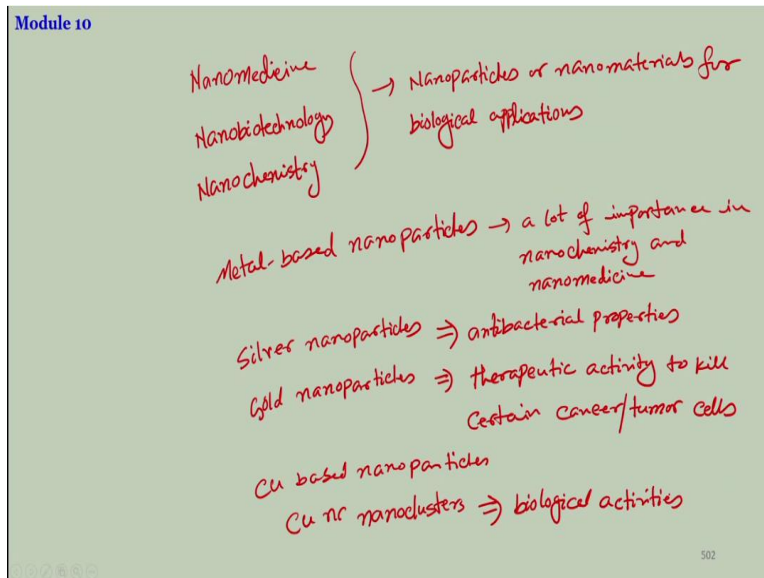 Module 10
Nanomedicine
Nanobiotechnology
Nanochemistry
→ Nanoparticles or nanomaterials for
biological applications
Metal-based nanoparticles → a lot of importance in
nanochemistry and
nanomedicine
Silver nanoparticles ⇒ antibacterial properties
Gold nanoparticles ⇒ therapeutic activity to kill
certain cancer/tumor cells
Cu based nanoparticles
Cu nc nanoclusters ⇒ biological activities
502